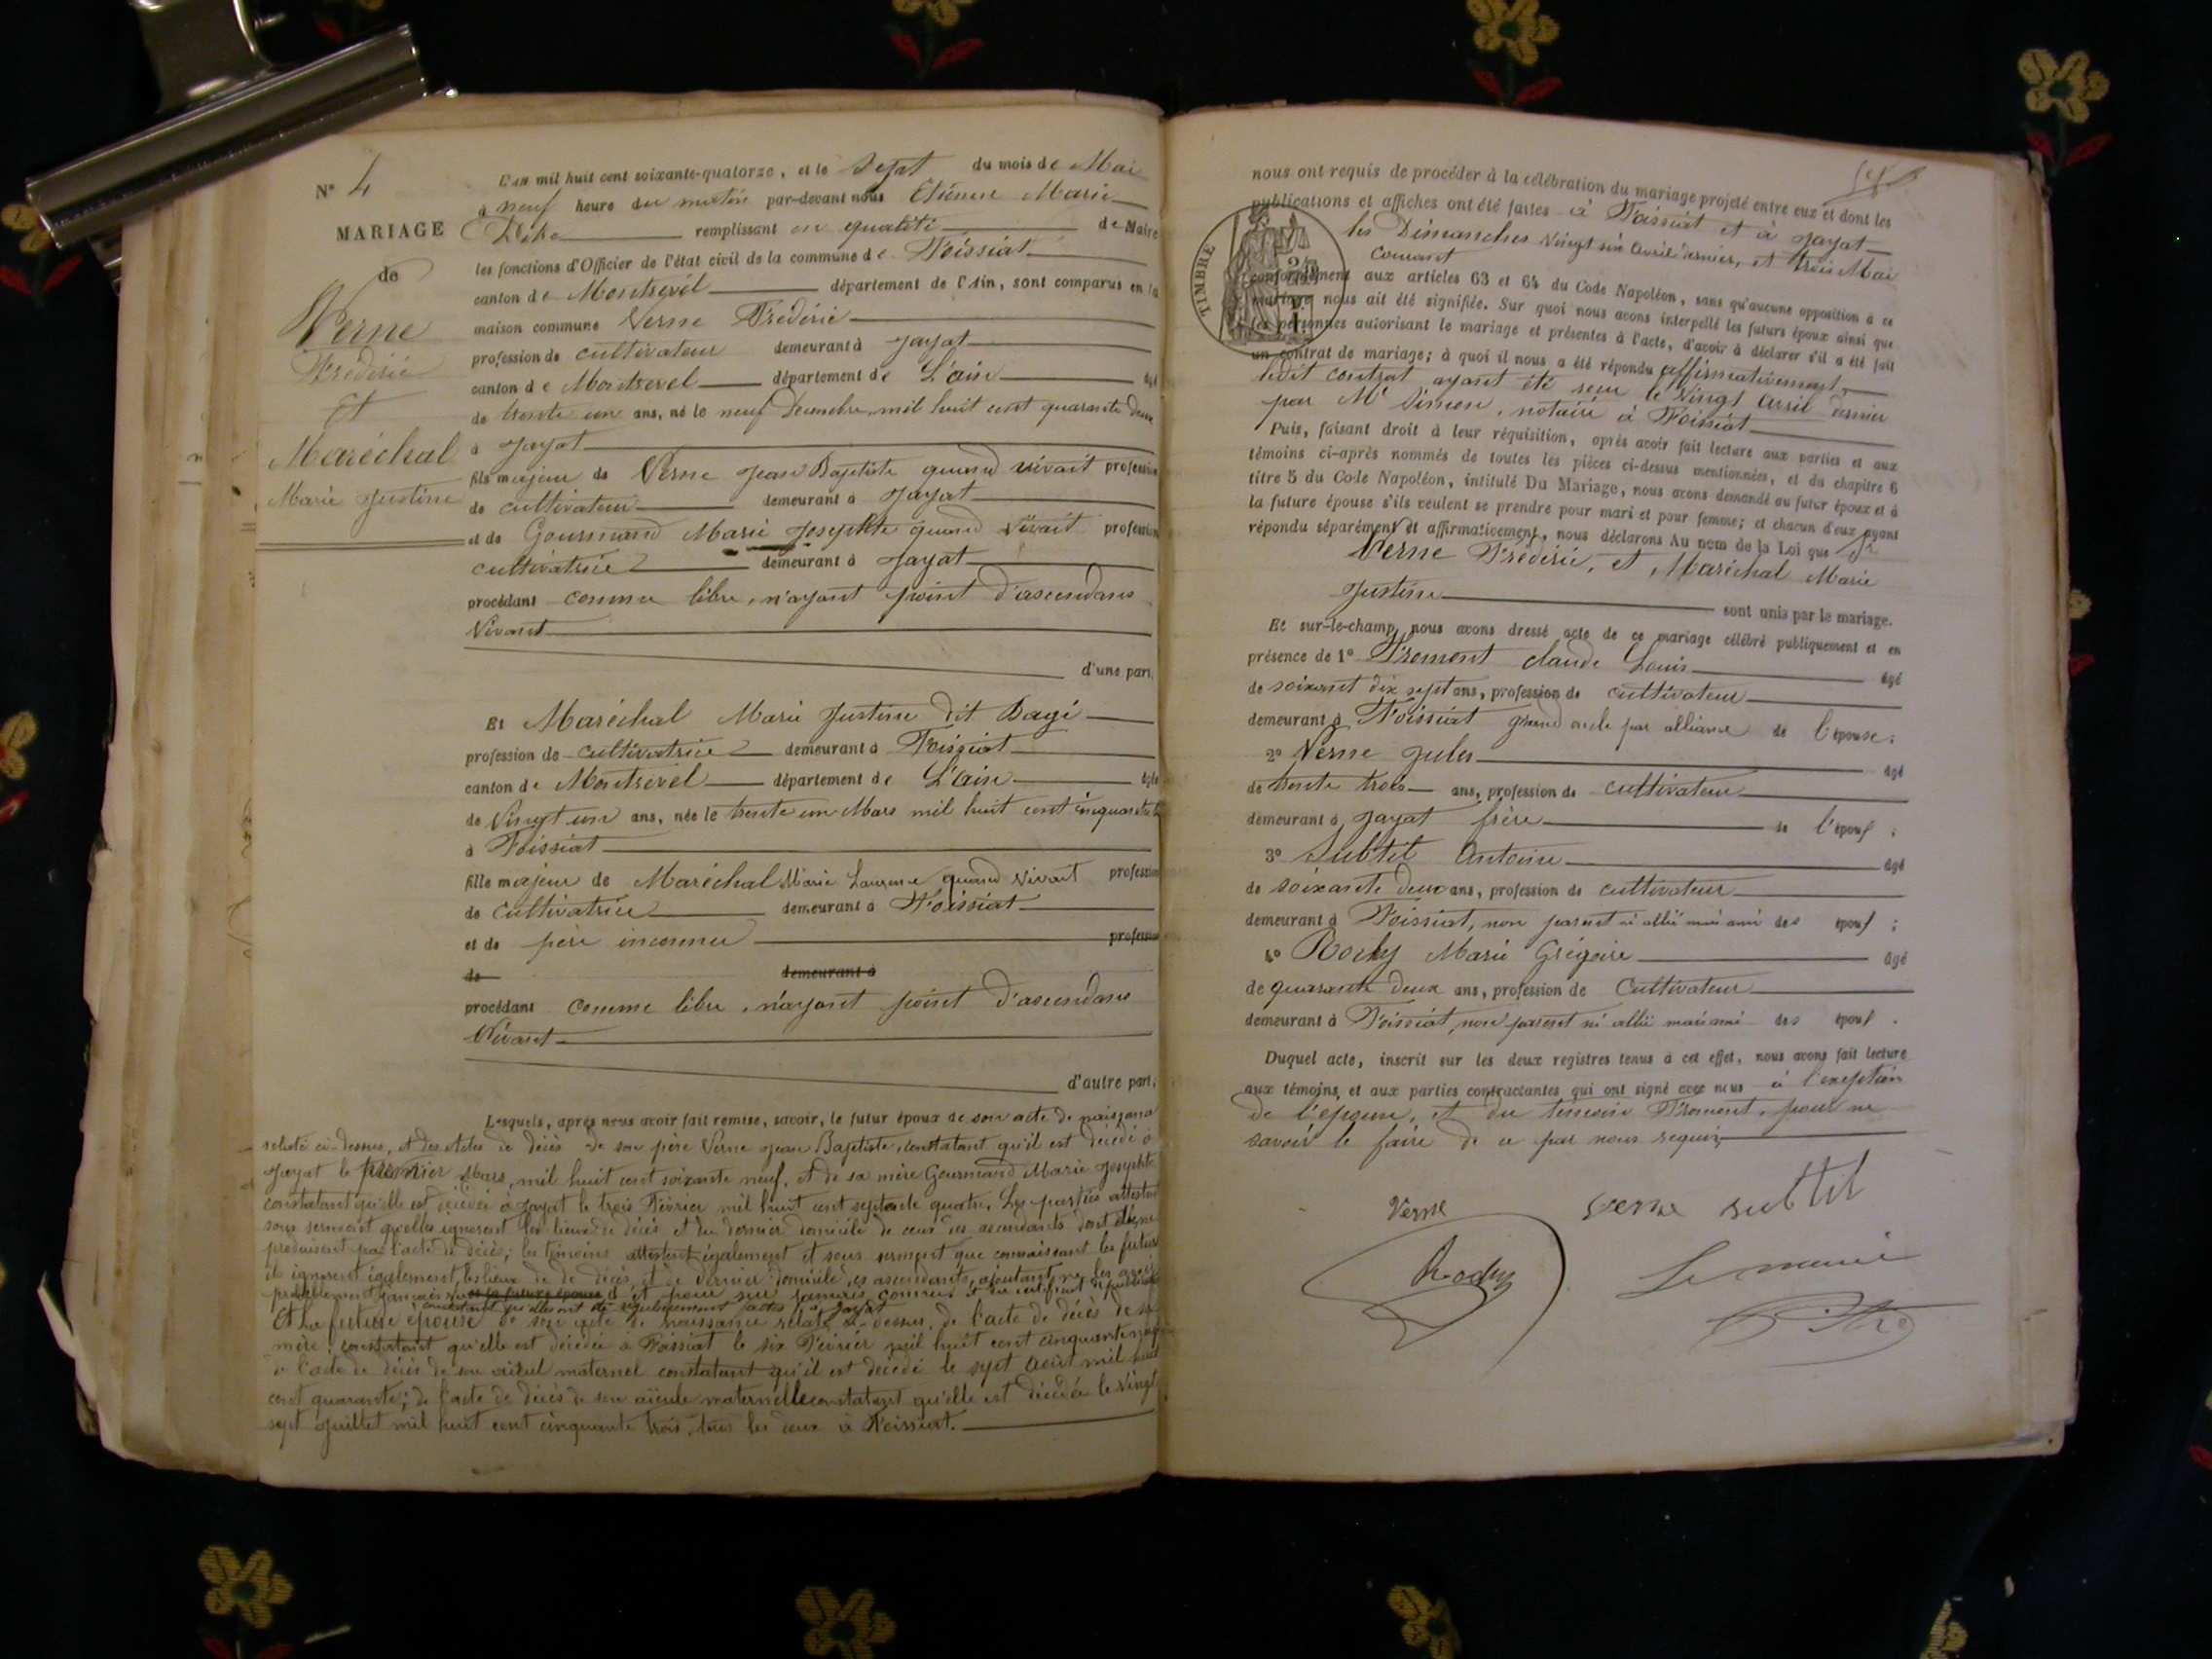 N° 4
MARIAGE
de
Verne
Frédéric
et
Maréchal
Marie Justine
L'an mil huit cent soixante-quatorze, et le Sept du mois de Mai
à neuf heure du matin par-devant nous Etienne Marie
remplissant en qualité de Maire
les fonctions d'Officier de l'état civil de la commune de Foissiat
canton de Montrevel département de l'Ain, sont comparus en la
maison commune Verne Frédéric
profession de cultivateur demeurant à Jayat
canton de Montrevel département de L'ain âgé
de trente un ans, né le neuf Decembre mil huit cent quarante deux
à Jayat
fils majeur de Verne Jean Baptiste quand vivait profession
de cultivateur demeurant à Jayat
et de Gourmand Marie Josephte quand vivait profession
cultivatrice demeurant à Jayat
procédant comme libre, n'ayant point d'ascendans
Vivant
d'une part,
Et Maréchal Marie Justine dit Bagi
profession de cultivatrice demeurant à Foissiat
canton de Montrevel département de L'ain âgée
de Vingt un ans, née le trente un Mars mil huit cent cinquante
à Foissiat
fille majeur de Maréchal Marie Laurence quand vivait profession
de cultivatrice demeurant à Foissiat
et de père inconnu profession
de demeurant à
procédant comme libre, n'ayant point d'ascendans
Vivant
d'autre part,
Lesquels, après nous avoir fait remise, savoir, le futur époux de son acte de naissance
relaté ci-dessus, et des Actes de décès de son père Verne Jean Baptiste, constatant qu'il est décédé à
Jayat le premier Mars, mil huit cent soixante neuf, et de sa mère Gourmand Marie Josephte
constatant qu'elle est décédée à Jayat le trois Février mil huit cent septante quatre. Les parties attestent
sous serment qu'elles ignorent les lieux de décès et du dernier domicile de ceux des ascendants dont elles ne
produisent pas l'acte de décès; les témoins attestent également et sous serment que connaissant les futurs
ils ignorent également les lieux de décès et de dernier domicile des ascendants, ajoutant ne les avoir
jamais connus et du certificat de publication
constatant qu'elles ont été régulièrement faites à Jayat
Et La future épouse de son acte de naissance relaté ci-dessus, de l'acte de décès de sa
mère, constatant qu'elle est décédée à Foissiat le six Février mil huit cent cinquante
de l'acte de décès de son aïeul maternel constatant qu'il est décédé le sept Août mil huit
cent quarante; de l'acte de décès de son aïeule maternelle constatant qu'elle est décédée le Vingt
sept Juillet mil huit cent cinquante trois, tous les deux à Foissiat.
nous ont requis de procéder à la célébration du mariage projeté entre eux et dont les
publications et affiches ont été faites à Foissiat et à Jayat
les Dimanches Vingt six Avril dernier, et trois Mai
Courant
TIMBRE
conformément aux articles 63 et 64 du Code Napoléon, sans qu'aucune opposition à ce
mariage nous ait été signifiée. Sur quoi nous avons interpellé les futurs époux ainsi que
les personnes autorisant le mariage et présentes à l'acte, d'avoir à déclarer s'il a été fait
un contrat de mariage; à quoi il nous a été répondu affirmativement
ledit contrat ayant été recu le Vingt Avril dernier
par Me Simon, notaire à Foissiat
Puis, faisant droit à leur réquisition, après avoir fait lecture aux parties et aux
témoins ci-après nommés de toutes les pièces ci-dessus mentionnées, et du chapitre 6
titre 5 du Code Napoléon, intitulé Du Mariage, nous avons demandé au futur époux et à
la future épouse s'ils veulent se prendre pour mari et pour femme; et chacun d'eux ayant
répondu séparément et affirmativement, nous déclarons Au nom de la Loi que
Verne Frédéric, et Maréchal Marie
Justine sont unis par le mariage.
Et sur-le-champ, nous avons dressé acte de ce mariage célébré publiquement et en
présence de 1° Froment claude Louis âgé
de soixant dix sept ans, profession de cultivateur
demeurant à Foissiat grand oncle par alliance de l'épouse;
2° Verne Jules âgé
de trente trois ans, profession de cultivateur
demeurant à Jayat frère de l'époux;
3° Subtil Antoine âgé
de soixante deux ans, profession de cultivateur
demeurant à Foissiat, non parent ni allié mais ami des époux;
4° Rochy Marie Grégoire âgé
de quarante deux ans, profession de Cultivateur
demeurant à Foissiat, non parent ni allié mais ami des époux.
Duquel acte, inscrit sur les deux registres tenus à cet effet, nous avons fait lecture
aux témoins, et aux parties contractantes qui ont signé avec nous à l'exception
de l'épouse, et du témoin Froment, pour ne
savoir le faire de ce par nous requis
Verne verne subtil
Rochy Le maire